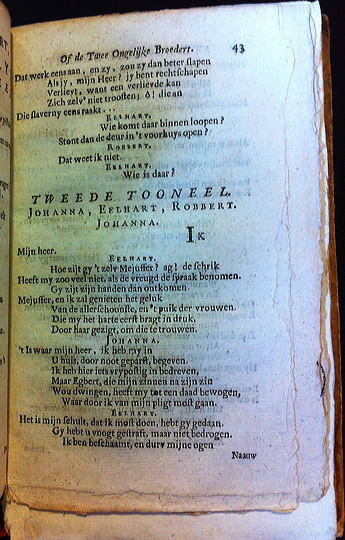 Of de Twee Ongelijke Broeders. 43
Dat werk eens aan, en zy, zou zy dan beter slapen
Als jy, mijn Heer? jy bent rechtschapen
Verlieft, want een verliefde kan
Zich zelv' niet troosten; ô! die aan
Die slaverny eens raakt...
EELHART,
Wie komt daar binnen loopen?
Stont dan de deur in 't voorhuys open?
ROBBERT,
Dat weet ik niet.
EELHART,
Wie is daar?
TWEEDE TOONEEL.
JOHANNA, EELHART, ROBBERT.
JOHANNA.
IK
Mijn heer.
EELHART,
Hoe zijt gy 't zelv Mejuffer? ag! de schrik
Heeft my zoo veel niet, als de vreugd de spraak benomen.
Gy zijt zijn handen dan ontkomen
Mejuffer, en ik zal genieten het geluk
Van de allerschoonste, en 't puik der vrouwen.
Die my het harte eerst bragt in druk,
Door haar gezigt, om die te trouwen.
JOHANNA.
't Is waar mijn heer, ik heb my in
U huis, door noot geparst, begeven.
Ik heb hier iets vrypostig in bedreven,
Maar Egbert, die mijn zinnen na zijn zin
Wou dwingen, heeft my tot een daad bewogen,
Waar door ik van mijn pligt most gaan.
EELHART,
Het is mijn schult, dat ik most doen, hebt gy gedaan.
Gy hebt u voogt gestraft, maar niet bedrogen.
Ik ben beschaamt, en durv mijne ogen
Naauw